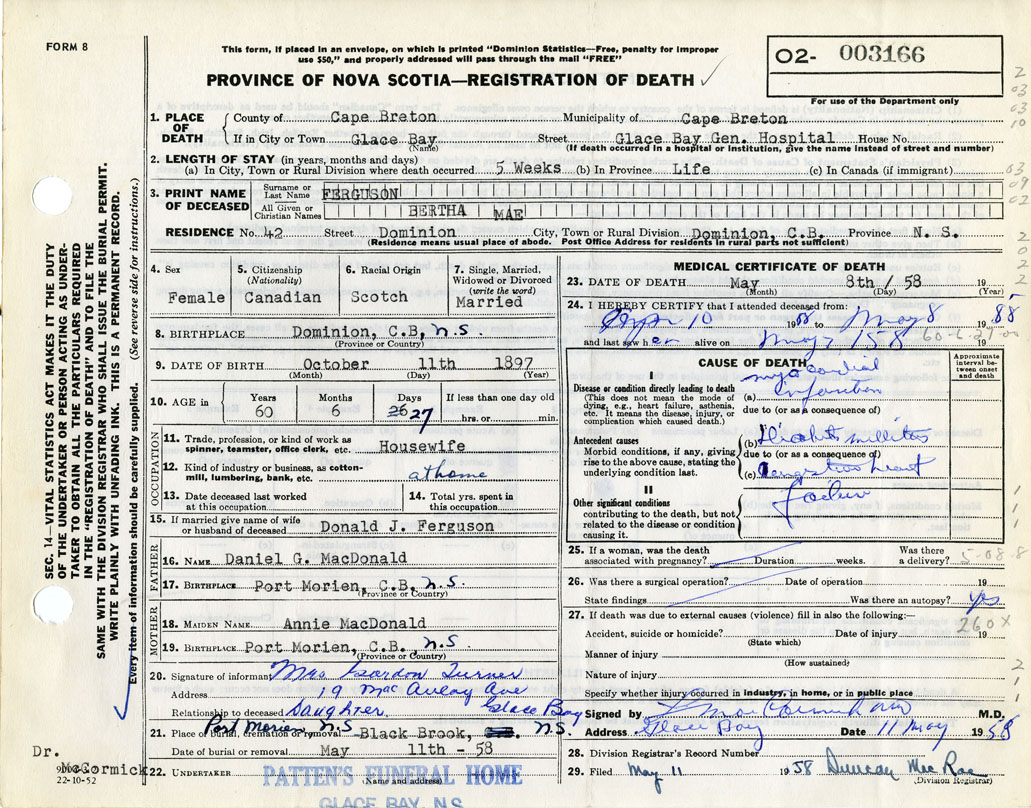 FORM 8
This form, if placed in an envelope, on which is printed "Dominion Statistics—Free, penalty for improper
use $50," and properly addressed will pass through the mail "FREE"
PROVINCE OF NOVA SCOTIA—REGISTRATION OF DEATH ✓
O2- 003166
For use of the Department only
1. PLACE OF DEATH { County of Cape Breton Municipality of Cape Breton
If in City or Town Glace Bay (Name) Street Glace Bay Gen. Hospital House No.
(If death occurred in a hospital or institution, give the name instead of street and number)
2. LENGTH OF STAY (in years, months and days)
(a) In City, Town or Rural Division where death occurred 5 Weeks (b) In Province Life (c) In Canada (if immigrant)
3. PRINT NAME OF DECEASED { Surname or Last Name FERGUSON
All Given or Christian Names BERTHA MAE
RESIDENCE No. 42 Street Dominion City, Town or Rural Division Dominion, C.B. Province N. S.
(Residence means usual place of abode. Post Office Address for residents in rural parts not sufficient)
4. Sex Female
5. Citizenship (Nationality) Canadian
6. Racial Origin Scotch
7. Single, Married, Widowed or Divorced (write the word) Married
8. BIRTHPLACE Dominion, C.B. N.S
(Province or Country)
9. DATE OF BIRTH October 11th 1897
(Month) (Day) (Year)
10. AGE in { Years 60 Months 6 Days 26 27 If less than one day old hrs. or min.
OCCUPATION
11. Trade, profession, or kind of work as spinner, teamster, office clerk, etc. Housewife
12. Kind of industry or business, as cotton-mill, lumbering, bank, etc. at home
13. Date deceased last worked at this occupation
14. Total yrs. spent in this occupation
15. If married give name of wife or husband of deceased Donald J. Ferguson
FATHER
16. NAME Daniel G. MacDonald
17. BIRTHPLACE Port Morien, C.B. N.S.
(Province or Country)
MOTHER
18. MAIDEN NAME Annie MacDonald
19. BIRTHPLACE Port Morien, C.B. N.S
(Province or Country)
20. Signature of informant Mrs Gordon Turner
Address 19 MacAulay Ave
Relationship to deceased Daughter. Glace Bay
Port Morien N.S
21. Place of burial, cremation or removal Black Brook, N.S.
Date of burial or removal May 11th - 58
22. UNDERTAKER PATTEN'S FUNERAL HOME
(Name and address)
GLACE BAY, N.S.
MEDICAL CERTIFICATE OF DEATH
23. DATE OF DEATH May 8th / 58 19
(Month) (Day) (Year)
24. I HEREBY CERTIFY that I attended deceased from:
Apr 10 19 58 to May 8 19
and last saw her alive on May 7 1958 19
CAUSE OF DEATH
Approximate interval between onset and death
I
Disease or condition directly leading to death
(This does not mean the mode of dying, e.g., heart failure, asthenia, etc. It means the disease, injury, or complication which caused death.)
(a) myocardial infarction
due to (or as a consequence of)
Antecedent causes
Morbid conditions, if any, giving rise to the above cause, stating the underlying condition last.
(b) Diabetes mellitus
due to (or as a consequence of)
(c) Congestive heart
failure
II
Other significant conditions
contributing to the death, but not related to the disease or condition causing it.
25. If a woman, was the death associated with pregnancy? Duration weeks. Was there a delivery?
5-08-8
26. Was there a surgical operation? Date of operation 19
State findings Was there an autopsy? yes
27. If death was due to external causes (violence) fill in also the following:—
260X
Accident, suicide or homicide? Date of injury 19
(State which)
Manner of injury
(How sustained)
Nature of injury
Specify whether injury occurred in industry, in home, or in public place
Signed by M.D.
Address Glace Bay Date 11 May 1958
28. Division Registrar's Record Number
29. Filed May 11 1958 Duncan MacRae
(Division Registrar)
SEC. 14—VITAL STATISTICS ACT MAKES IT THE DUTY
OF THE UNDERTAKER OR PERSON ACTING AS UNDER-
TAKER TO OBTAIN ALL THE PARTICULARS REQUIRED
IN THE "REGISTRATION OF DEATH" AND TO FILE THE
SAME WITH THE DIVISION REGISTRAR WHO SHALL ISSUE THE BURIAL PERMIT.
WRITE PLAINLY WITH UNFADING INK. THIS IS A PERMANENT RECORD.
Every item of information should be carefully supplied. (See reverse side for instructions.)
Dr.
McCormick
22-10-52